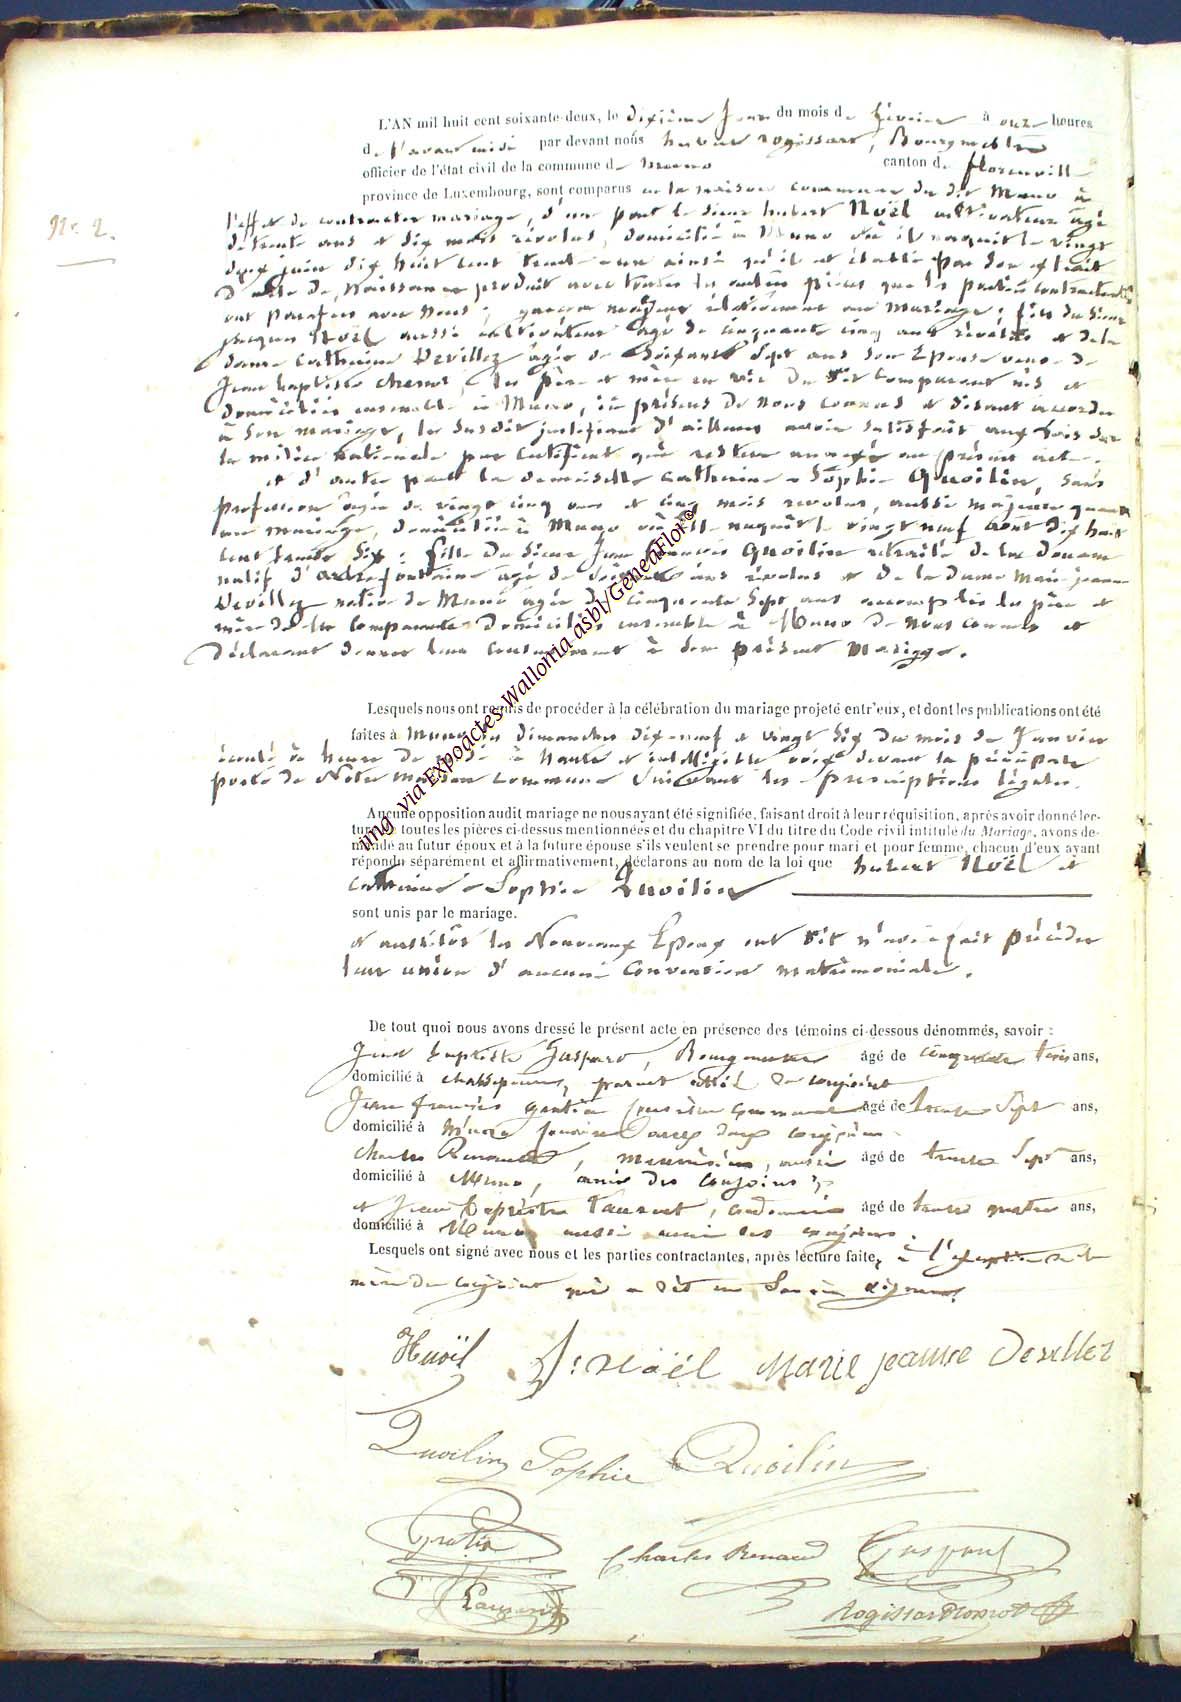 L'AN mil huit cent soixante-deux, le dixième jour du mois de février à onze heures
de l'avant midi par devant nous hubert Rogissart, Bourgmestre
officier de l'état civil de la commune de Muno canton de florenville
province de Luxembourg, sont comparus en la maison commune du dit Muno à
Nr. 2.
l'effet de contracter mariage, d'une part le sieur hubert Noël cultivateur âgé
de trente ans et six mois révolus, domicilié à Muno où il naquit le vingt
deux juin dix huit cent trente-un ainsi qu'il est établi par son extrait
d'acte de Naissance produit avec toutes les autres pièces que les parties contractantes
ont paraféés avec Nous, garçon majeur relativement au mariage; fils du sieur
jacques Noël aussi cultivateur âgé de cinquante cinq ans révolus et de la
dame Catherine Devillez âgée de Soixante Sept ans son Epouse veuve de
Jean baptiste les père et mère en vie du dit Comparant nés et
domiciliés ensemble à Muno, ici présens de nous connus et disant accorder
à son mariage, le susdit justifiant d'ailleurs avoir satisfait aux lois sur
la milice nationale par certificat qui restera annexé au présent acte.
et d'autre part la demoiselle Catherine-Sophie Quoilin, sans
profession âgée de vingt cinq ans et cinq mois révolus, aussi majeure quant
au mariage, domiciliée à Muno où elle naquit le vingt neuf août dix huit
cent trente six; fille du sieur Jean françois Quoilin retraité de la douane
natif d' âgé de ans révolus et de la dame Marie jeanne
Devillez native de Muno âgée de cinquante Sept ans accomplis les père et
mère de la Comparante domiciliés ensemble à Muno de nous connus et
déclarant donner leur consentement à son présent Mariage.
Lesquels nous ont requis de procéder à la célébration du mariage projeté entr'eux, et dont les publications ont été
faites à Muno les dimanches dix-neuf et vingt six du mois de Janvier
écoulé à heure de midi à haute et intelligible voix devant la principale
porte de Notre maison Commune Suivant les prescriptions légales.
Aucune opposition audit mariage ne nous ayant été signifiée, faisant droit à leur réquisition, après avoir donné lec-
ture de toutes les pièces ci-dessus mentionnées et du chapitre VI du titre du Code civil intitulé du Mariage, avons de-
mandé au futur époux et à la future épouse s'ils veulent se prendre pour mari et pour femme, chacun d'eux ayant
répondu séparément et affirmativement, déclarons au nom de la loi que hubert Noël et
Catherine-Sophie Quoilin
sont unis par le mariage.
et aussitôt les Nouveaux Epoux ont dit n'avoir fait précéder
leur union d'aucune Convention matrimoniale.
De tout quoi nous avons dressé le présent acte en présence des témoins ci-dessous dénommés, savoir :
Jean baptiste Gaspard, Bourgmestre âgé de cinquante trois ans,
domicilié à chassepierre, parent allié du conjoint
Jean françois gratia secrétaire communal âgé de trente Sept ans,
domicilié à Muno
Charles Renauld, menuisier, aussi âgé de trente Sept ans,
domicilié à Muno, ami des conjoints
et Jean Baptiste Laurent, cordonnier âgé de trente quatre ans,
domicilié à Muno aussi ami des conjoints.
Lesquels ont signé avec nous et les parties contractantes, après lecture faite, à l'exception de la
mère du conjoint qui a dit ne Savoir signer.
HNoël J: Noël Marie jeanne Devillez
Quoilin Sophie Quoilin
Gratia Charles Renaud Gaspard
Laurent
img via Expoactes-Wallonia asbl/GeneaFlor©